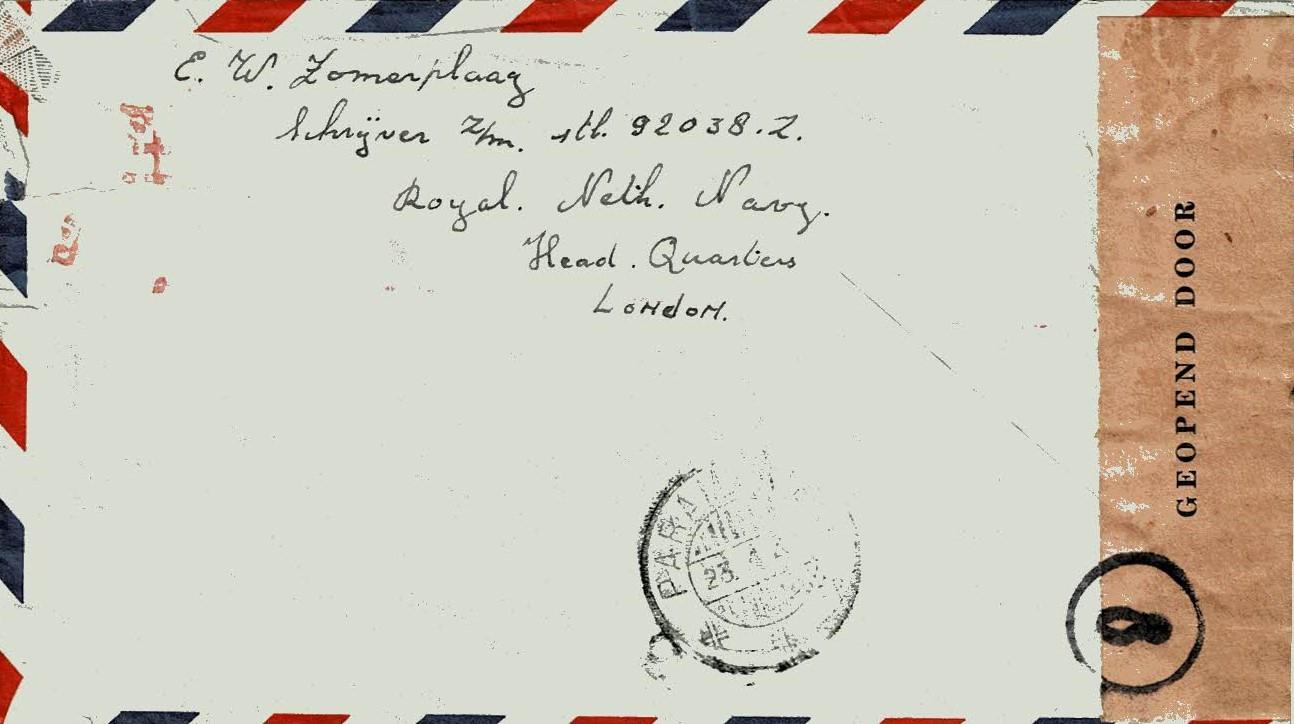 E. W. Zomerplaag
Schrijver z/m. stb. 92038.Z.
Royal. Neth. Navy.
Head. Quarters
LONdON.
GEOPEND DOOR
PARA
23. 4. 2
8